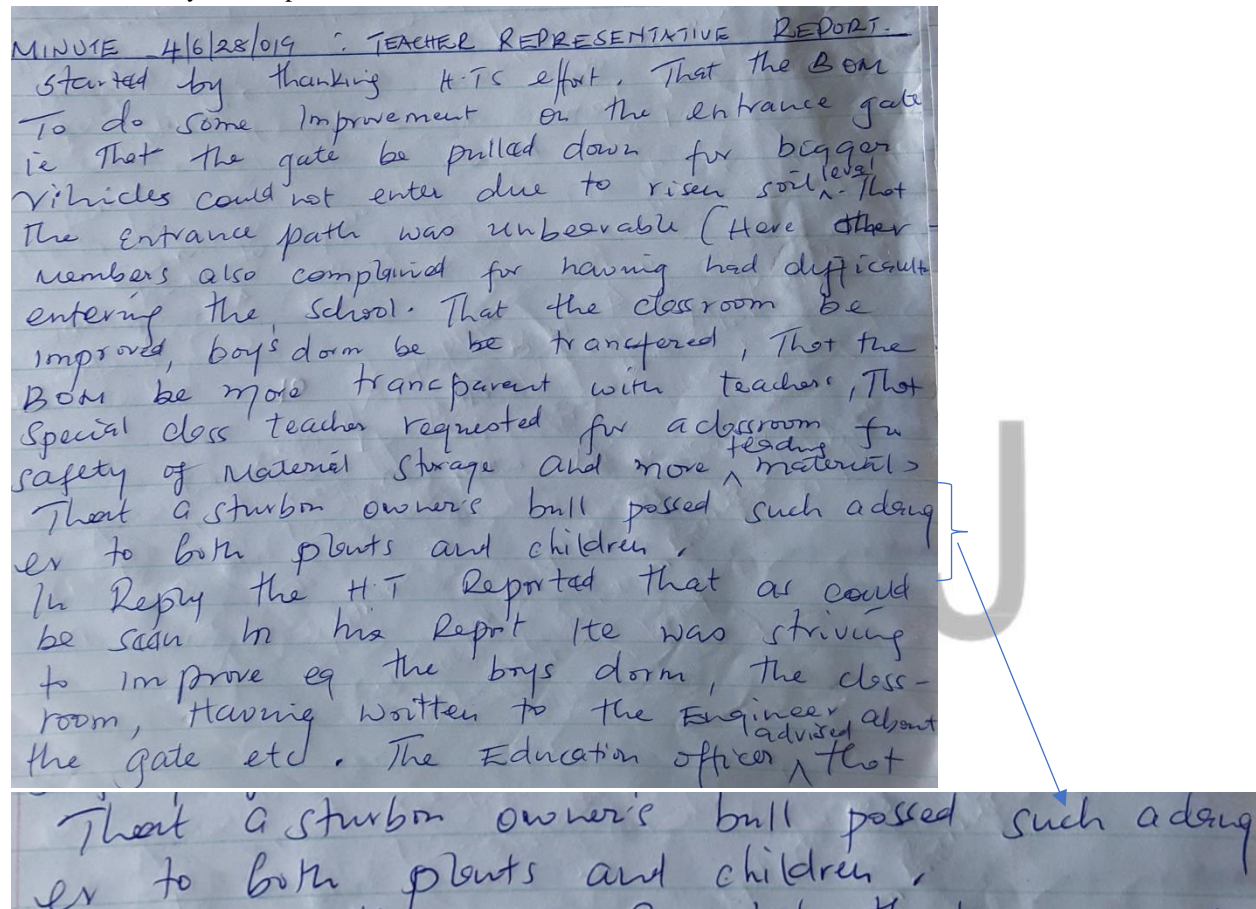 MINUTE 4/6/28/019 : TEACHER REPRESENTATIVE REPORT.
Started by thanking H.TS effort. That the BOM
To do some Improvement on the entrance gate
ie That the gate be pulled down for bigger
Vihicles could not enter due to risen soil level. That
The Entrance path was unbearable (Here other
members also complained for having had difficult
entering the school. That the classroom be
improved, boy's dorm be be transfered, That the
BOM be more transparent with teachers, That
Special class teacher requested for a classroom for
safety of Material storage and more materials
That a sturbon owner's bull possed such a dang
er to both plants and children.
In Reply the H.T Reported that as could
be seen in his Report He was striving
to improve eg the boys dorm, the class-
room, Having written to the Engineer about
the gate etc. The Education officer advised that
J
That a sturbon owner's bull possed such a dang
er to both plants and children.